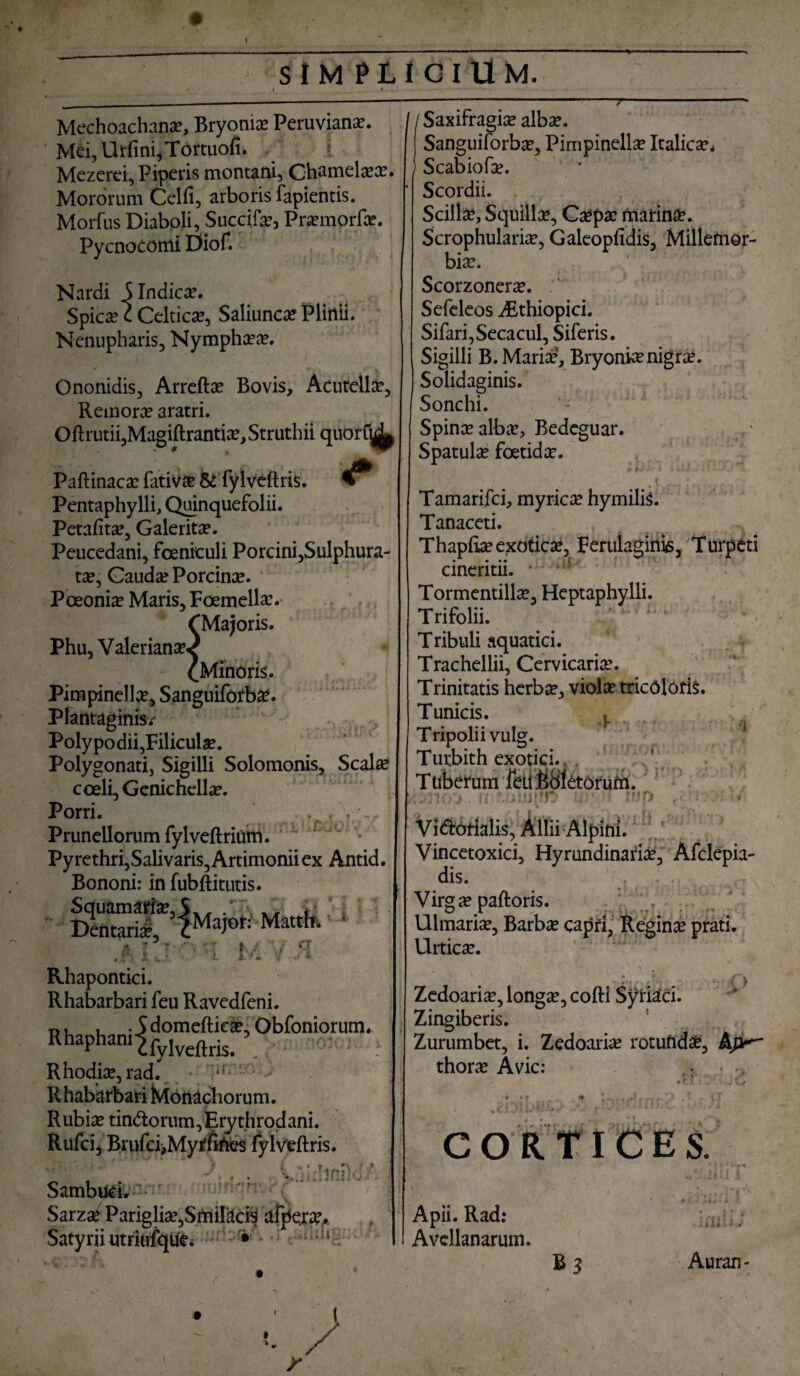 SIMPLICIUM.
Mechoachanæ, Bryoniæ Peruvianæ.
Mei, Urſini, Tortuoſi.
Mezerei, Piperis montani, Chamelææ.
Mororum Celſi, arboris ſapientis.
Morſus Diaboli, Succiſæ, Præmorſæ.
Pycnocomi Dioſ.
Nardi Indicæ.
Spicæ Celticæ, Saliuncæ Plinii.
Nenupharis, Nymphææ.
Ononidis, Arreſtæ Bovis, Acutellæ,
Remoræ aratri.
Oſtrutii, Magiſtrantiæ, Struthii
Paſtinacæ ſativæ & ſylveſtris.
Pentaphylli, Quinquefolii.
Petaſitæ, Galeritæ.
Peucedani, fœniculi Porcini, Sulphura-
tæ, Caudæ Porcinæ.
Pœoniæ Maris, Fœmellæ.
Majoris.
Phu, Valerianæ
Minoris.
Pimpinellæ, Sanguiſorbæ.
Plantaginis.
Polypodii, Filiculæ.
Polygonati, Sigilli Solomonis, Scalæ
cœli, Genichellæ.
Porri.
Prunellorum ſylveſtrium.
Pyrethri, Salivaris, Artimonii ex Antid.
Bononi: in ſubſtitutis.
Squamariæ,
Dentariæ, Major: Matth.
Rhapontici.
Rhabarbari ſeu Ravedſeni.
Rhaphani domeſticæ, Obſoniorum.
ſylveſtris.
Rhodiæ, rad.
Rhabarbari Monachorum.
Rubiæ tinctorum, Erythrodani.
Ruſci, Bruſci, Myrſines ſylveſtris.
Sambuci.
Sarzæ Parigliæ, Smilacis aſperæ.
Satyrii utriuſque.
Saxifragiæ albæ.
Sanguiſorbæ, Pimpinellæ Italicæ.
Scabioſæ.
Scordii.
Scillæ, Squillæ, Cæpæ marinæ.
Scrophulariæ, Galeopſidis, Millemor-
biæ.
Scorzoneræ.
Seſeleos Æthiopici.
Siſari, Secacul, Siſeris.
Sigilli B. Mariæ, Bryoniæ nigræ.
Solidaginis.
Sonchi.
Spinæ albæ, Bedeguar.
Spatulæ fœtidæ.
Tamariſci, myricæ hymilis.
Tanaceti.
Thapſiæ exoticæ, Ferulaginis, Turpeti
cineritii.
Tormentillæ, Heptaphylli.
Trifolii.
Tribuli aquatici.
Trachellii, Cervicariæ.
Trinitatis herbæ, violæ tricoloris.
Tunicis.
Tripolii vulg.
Turbith exotici.
Tuberum ſeu Boletorum.
Victorialis, Allii Alpini.
Vincetoxici, Hyrundinariæ, Aſclepia-
dis.
Virgæ paſtoris.
Ulmariæ, Barbæ capri, Reginæ prati.
Urticæ.
Zedoariæ, longæ, coſti Syriaci.
Zingiberis.
Zurumbet, i. Zedoariæ rotundæ,
thoræ Avic:
CORTICES.
Apii. Rad:
Avellanarum.
B 3
Auran-